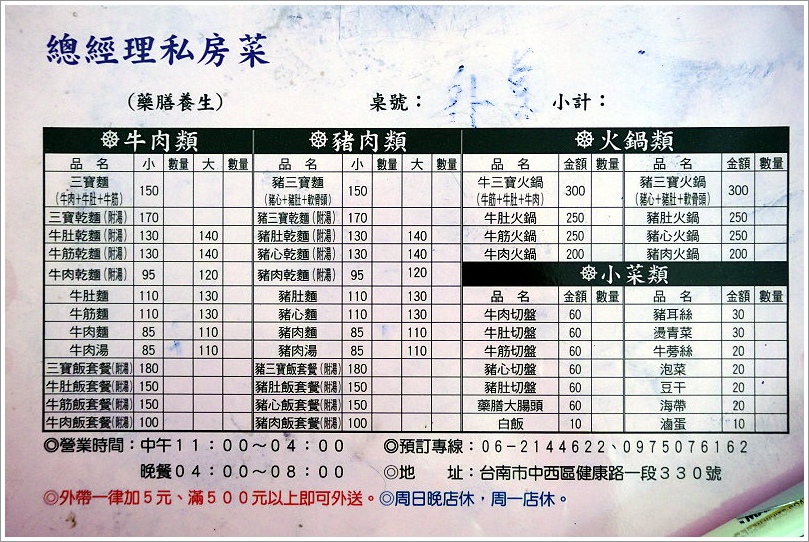 總經理私房菜
(藥膳養生) 桌號： 外 小計：
牛肉類 豬肉類 火鍋類
品名 小 數量 大 數量 品名 小 數量 大 數量 品名 金額 數量 品名 金額 數量
三寶麵 (牛肉+牛肚+牛筋) 150 豬三寶麵 (豬心+豬肚+軟骨頭) 150 牛三寶火鍋 (牛筋+牛肚+牛肉) 300 豬三寶火鍋 (豬心+豬肚+軟骨頭) 300
三寶乾麵(附湯) 170 豬三寶乾麵(附湯) 170 牛肚火鍋 250 豬肚火鍋 250
牛肚乾麵(附湯) 130 140 豬肚乾麵(附湯) 130 140 牛筋火鍋 250 豬心火鍋 250
牛筋乾麵(附湯) 130 140 豬心乾麵(附湯) 130 140 牛肉火鍋 200 豬肉火鍋 200
牛肉乾麵(附湯) 95 120 豬肉乾麵(附湯) 95 120 小菜類
牛肚麵 110 130 豬肚麵 110 130 品名 金額 數量 品名 金額 數量
牛筋麵 110 130 豬心麵 110 130 牛肉切盤 60 豬耳絲 30
牛肉麵 85 110 豬肉麵 85 110 牛肚切盤 60 燙青菜 30
牛肉湯 85 110 豬肉湯 85 110 牛筋切盤 60 牛蒡絲 20
三寶飯套餐(附湯) 180 豬三寶飯套餐(附湯) 180 豬心切盤 60 泡菜 20
牛肚飯套餐(附湯) 150 豬肚飯套餐(附湯) 150 豬肚切盤 60 豆干 20
牛筋飯套餐(附湯) 150 豬心飯套餐(附湯) 150 藥膳大腸頭 60 海帶 20
牛肉飯套餐(附湯) 100 豬肉飯套餐(附湯) 100 白飯 10 滷蛋 10
◎營業時間：中午11：00～04：00 ◎預訂專線：06-2144622、0975076162
晚餐04：00～08：00 ◎地 址：台南市中西區健康路一段330號
◎外帶一律加5元、滿500元以上即可外送。◎周日晚店休，周一店休。